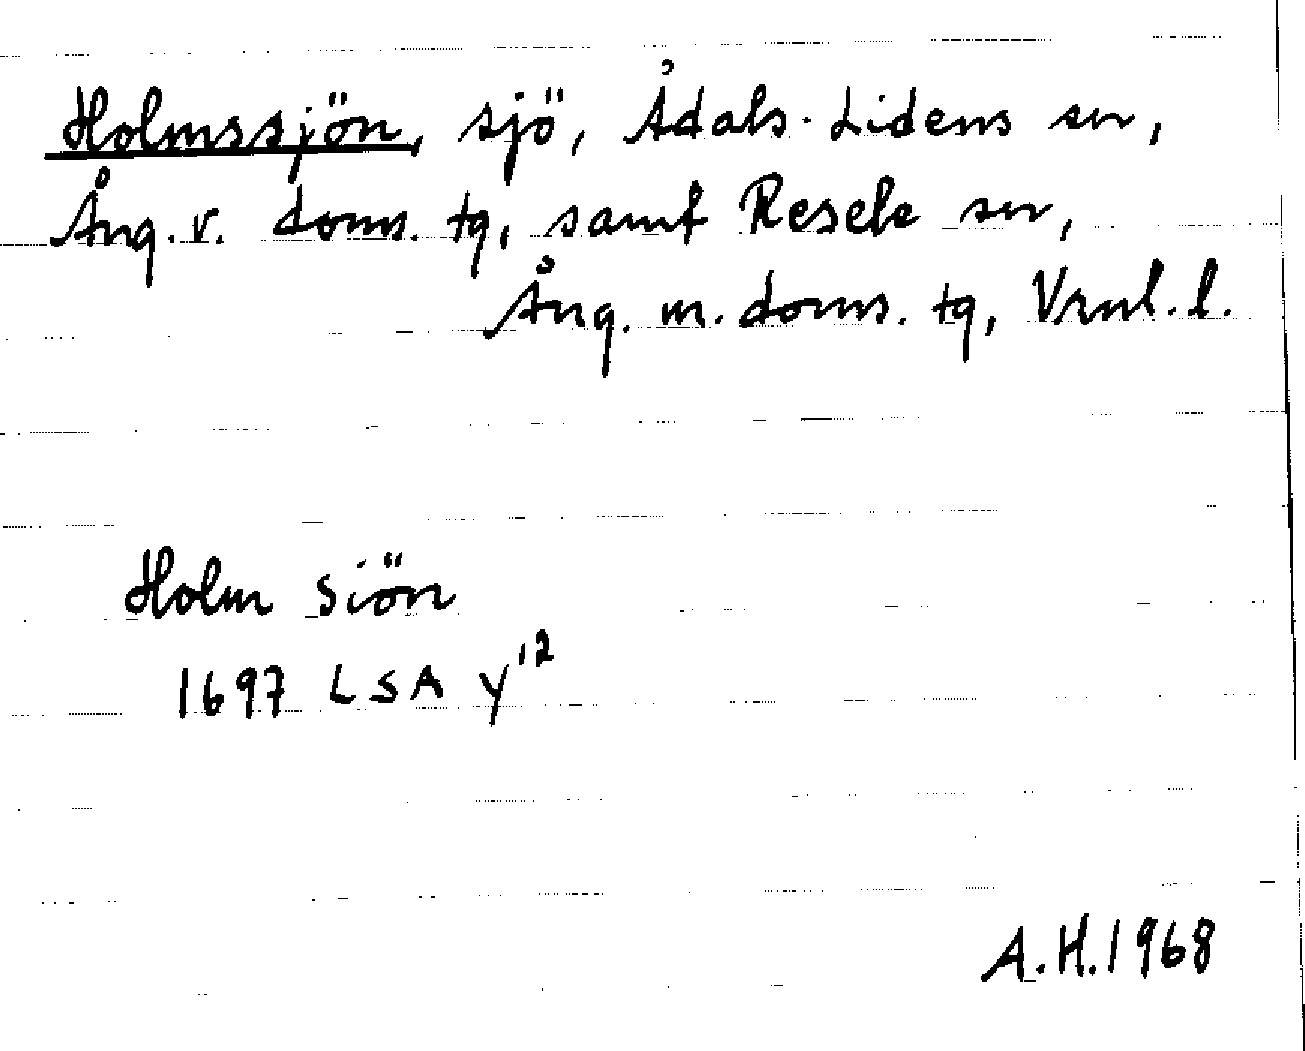 Holmssjön, sjö, Ådals-Lidens sn,
Ång. v. doms. tg, samt Resele sn,
Ång. m. doms. tg, Vrnl. l.
Holm Siön
1697 LSA Y12
A.H. 1968